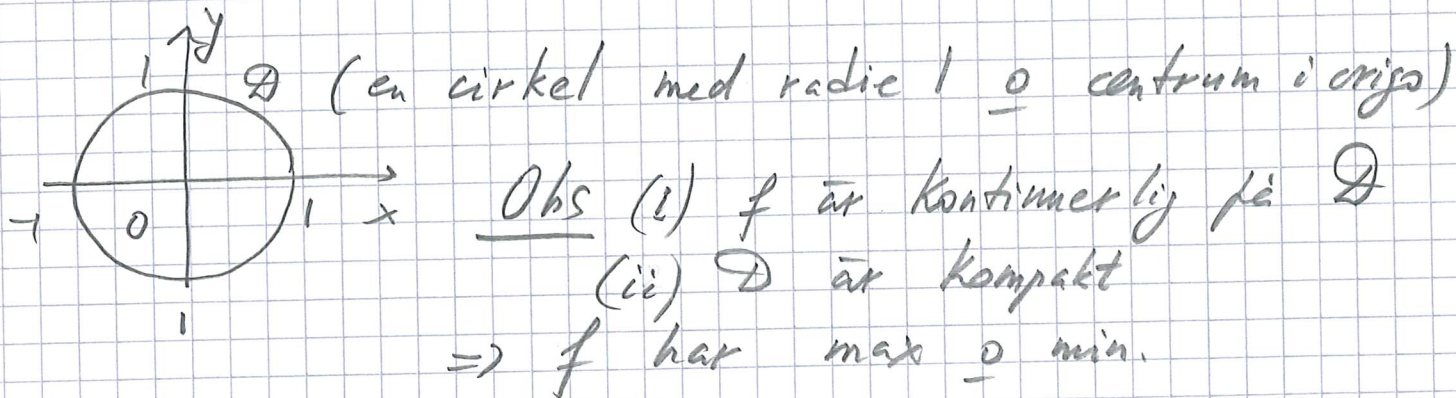 y
1 D (en cirkel med radie 1 o centrum i origo)
-1 0 1 x Obs (i) f är kontinuerlig på D
(ii) D är kompakt
1
=> f har max o min.